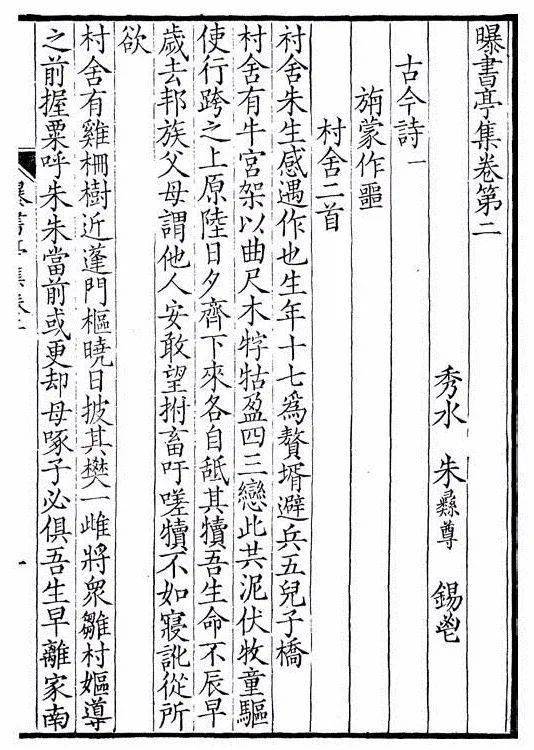 曝書亭集卷第二
秀水 朱彝尊 錫鬯
古今詩一
旃蒙作噩
村舍二首
村舍朱生感遇作也生年十七爲贅壻避兵五兒子橋
村舍有牛宮架以曲尺木牸牯盈四三戀此共泥伏牧童驅
使行跨之上原陸日夕齊下來各自舐其犢吾生命不辰早
歲去邦族父母謂他人安敢望拊畜吁嗟犢不如寢訛從所
欲
村舍有雞栅樹近蓬門樞曉日披其樊一雌將衆雛村嫗導
之前握粟呼朱朱當前或更却母啄子必俱吾生早離家南